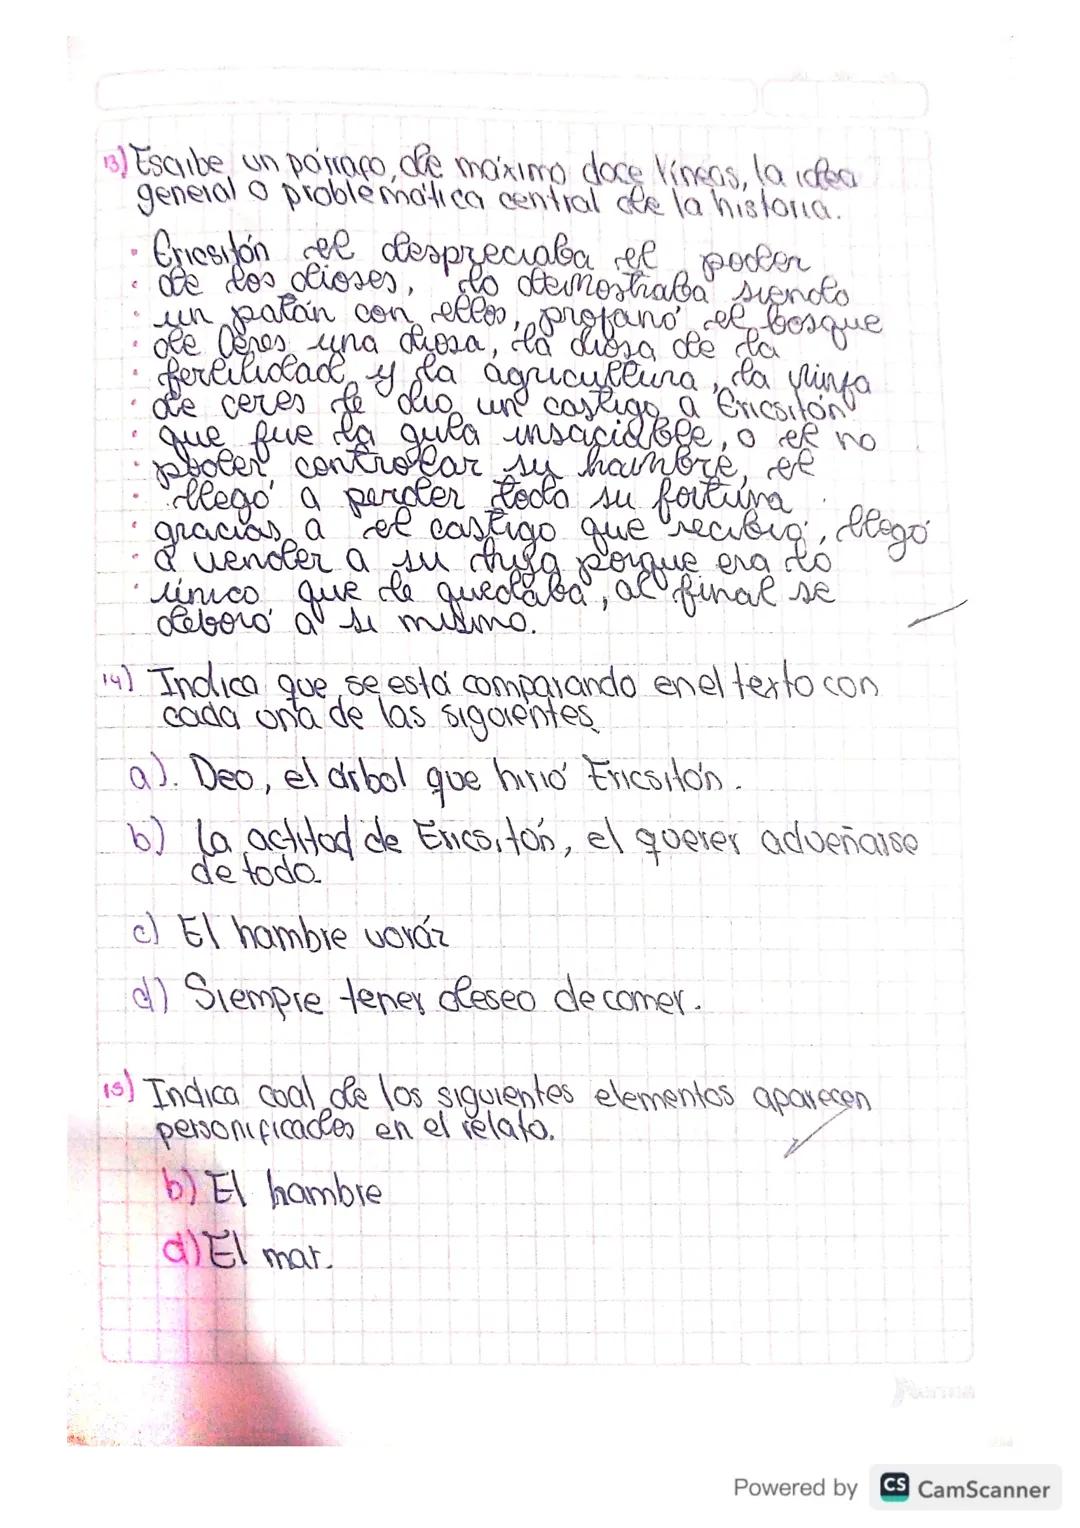 13) Escribe un párrafo, de máximo doce líneas, la idea
general o problemática central de la historia.
• Ericsitón el despreciaba el poder
• de los dioses, lo demostraba siendo
• un patán con ellos, profanó el bosque
• de Ceres una diosa, la diosa de la
• fertilidad y la agricultura, la ninfa
• de ceres le dio un castigo a Ericsitón
• que fue la gula insaciable, o el no
• poder controlar su hambre, el
• llegó a perder toda su fortuna
• gracias a el castigo que recibió, llegó
• a vender a su hija porque era lo
• único que le quedaba, al final se
deboró a si mismo.
14) Indica que se está comparando en el texto con
cada una de las siguientes
a). Deo, el árbol que hirió Ericsitón.
b) La actitud de Ericsitón, el querer adueñarse
de todo.
c) El hambre voráz
d) Siempre tener deseo de comer.
15) Indica cual de los siguientes elementos aparecen
personificados en el relato.
b) El hambre
d) El mar.
Norma
Powered by CS CamScanner